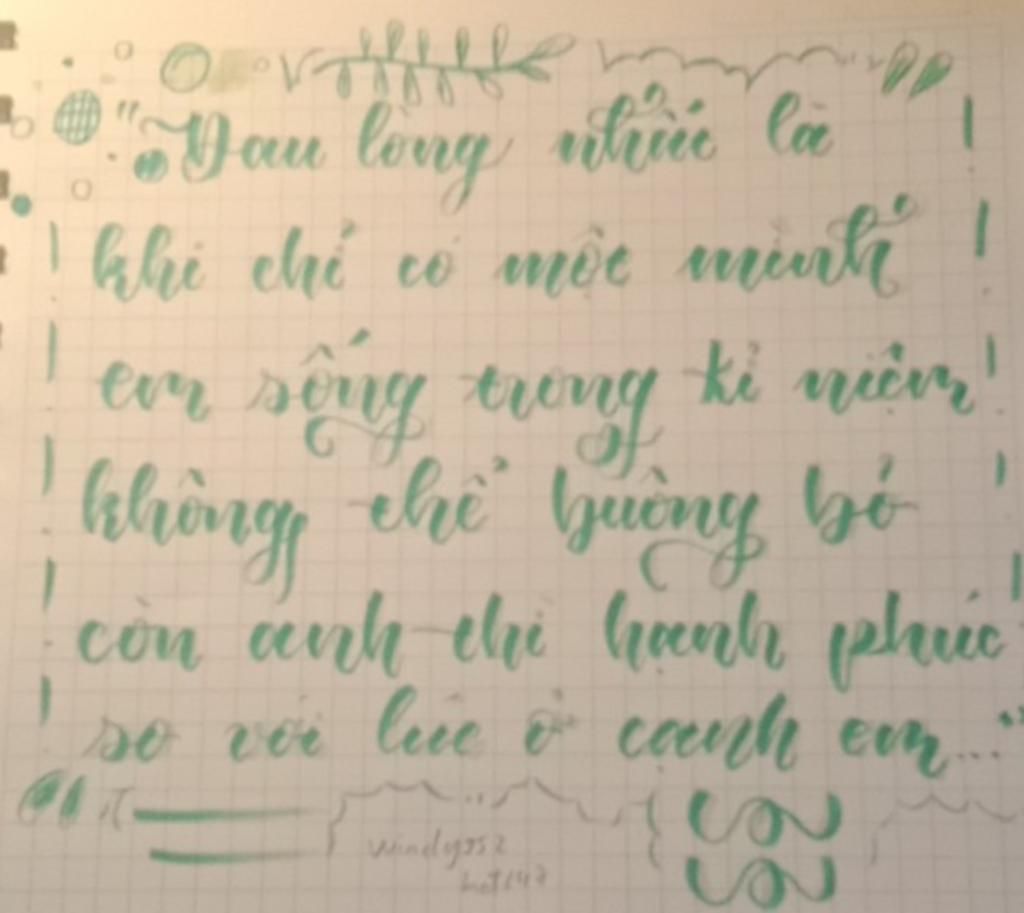 "Đau lòng nhất là
khi chỉ có một mình
em sống trong kỉ niệm
không thể buông bỏ
còn anh thì hạnh phúc
so với lúc ở cạnh em..."